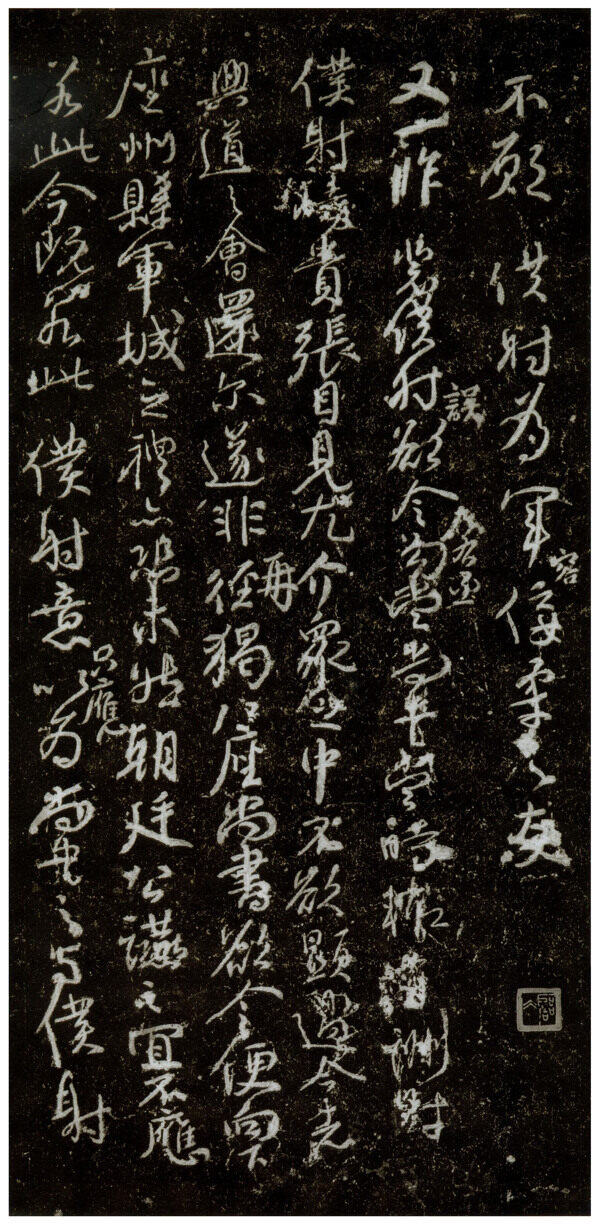 不願僕射為軍容佞柔之友
又一昨裴僕射誤欲令左右丞勾當尚書當時輒有酬對
僕射恃貴張目見尤介眾之中不欲顯過今者
興道之會還尔遂非再徑猲八座尚書欲令便向下
座州縣軍城之禮亦恐未然朝廷公讌之宜不應
若此今既若此僕射意只應以為尚書之與僕射